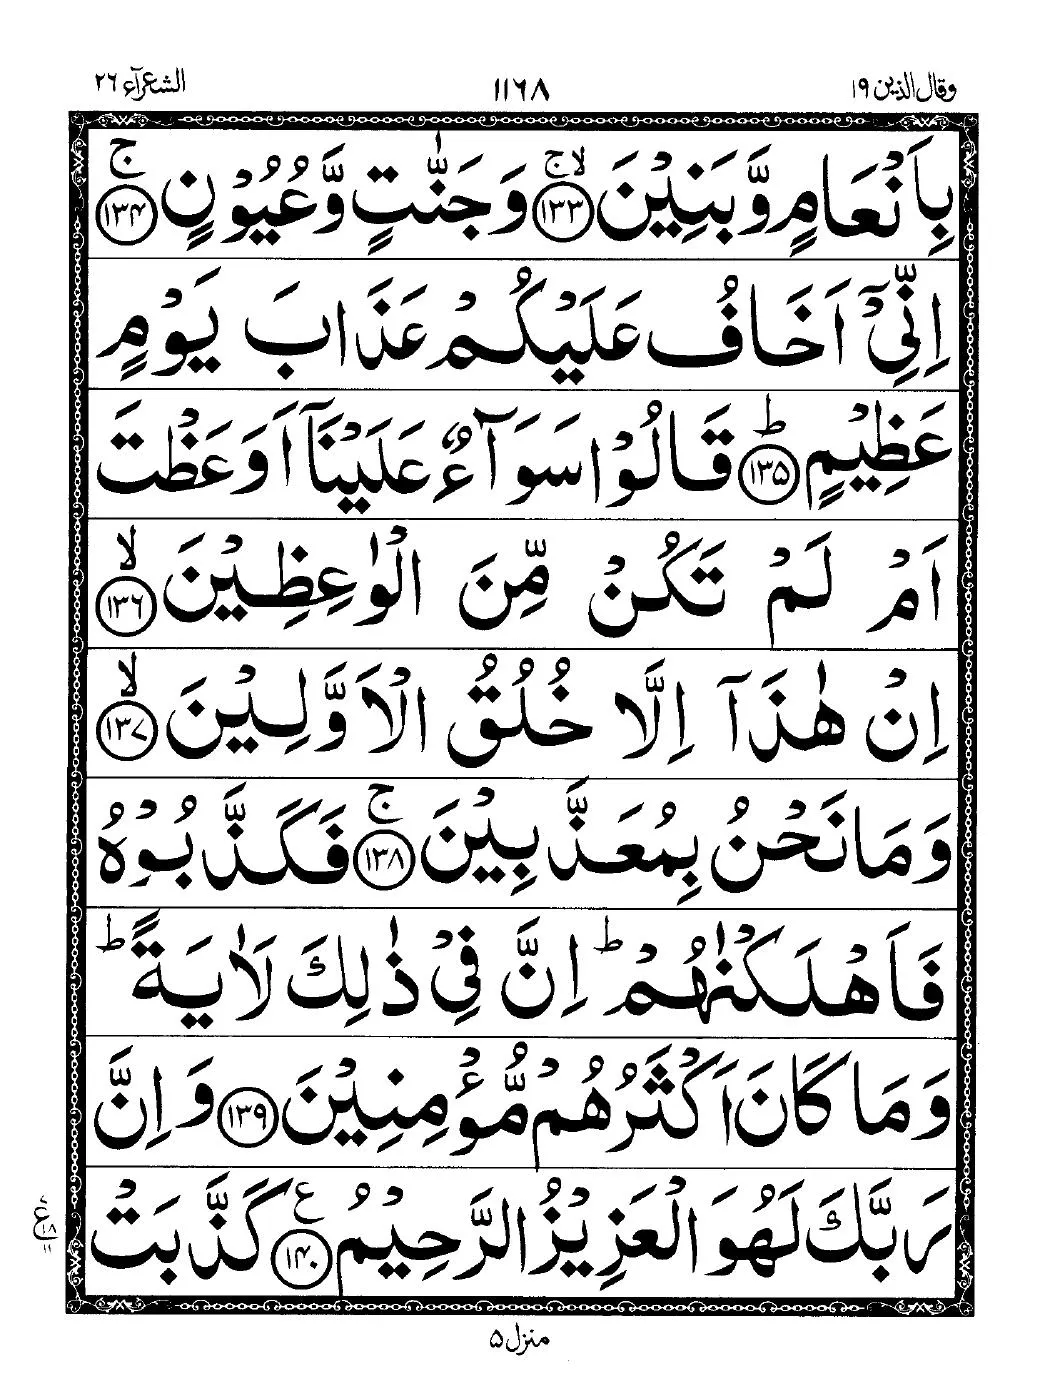 وقال الذين ١٩ ١١٦٨ الشعرآء ٢٦
بِاَنْعَامٍ وَّبَنِيْنَ ۙۚ ﴿١٣٣﴾ وَجَنّٰتٍ وَّعُيُوْنٍ ۚ ﴿١٣۴﴾
اِنِّيْۤ اَخَافُ عَلَيْكُمْ عَذَابَ يَوْمٍ
عَظِيْمٍ ؕ ﴿١٣۵﴾ قَالُوْا سَوَآءٌ عَلَيْنَاۤ اَوَعَظْتَ
اَمْ لَمْ تَكُنْ مِّنَ الْوٰعِظِيْنَ ۙ ﴿١٣٦﴾
اِنْ هٰذَاۤ اِلَّا خُلُقُ الْاَوَّلِيْنَ ۙ ﴿١٣٧﴾
وَمَا نَحْنُ بِمُعَذَّبِيْنَ ۚ ﴿١٣٨﴾ فَكَذَّبُوْهُ
فَاَهْلَكْنٰهُمْ ؕ اِنَّ فِيْ ذٰلِكَ لَاٰيَةً ؕ
وَمَا كَانَ اَكْثَرُهُمْ مُّؤْمِنِيْنَ ﴿١٣٩﴾ وَاِنَّ
رَبَّكَ لَهُوَ الْعَزِيْزُ الرَّحِيْمُ ع ﴿١۴٠﴾ كَذَّبَتْ
ع ١٨ ١١
منزل ۵